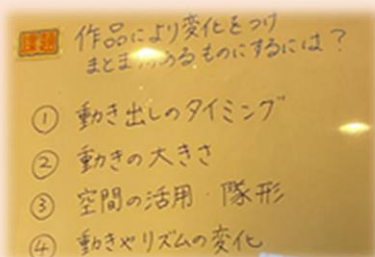 作品により変化をつけ
まとまりあるものにするには？
① 動き出しのタイミング
② 動きの大きさ
③ 空間の活用・隊形
④ 動きやリズムの変化